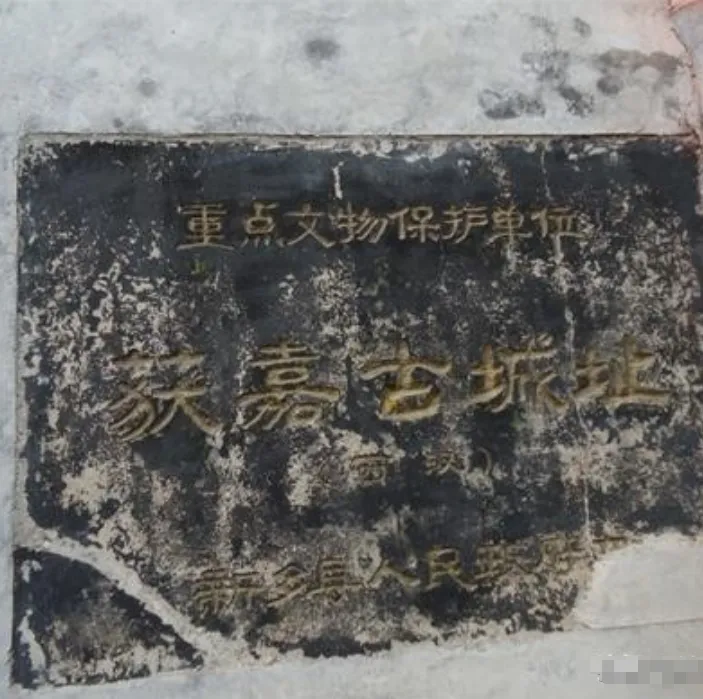 重点文物保护单位
获嘉古城址
（西汉）
新乡县人民政府